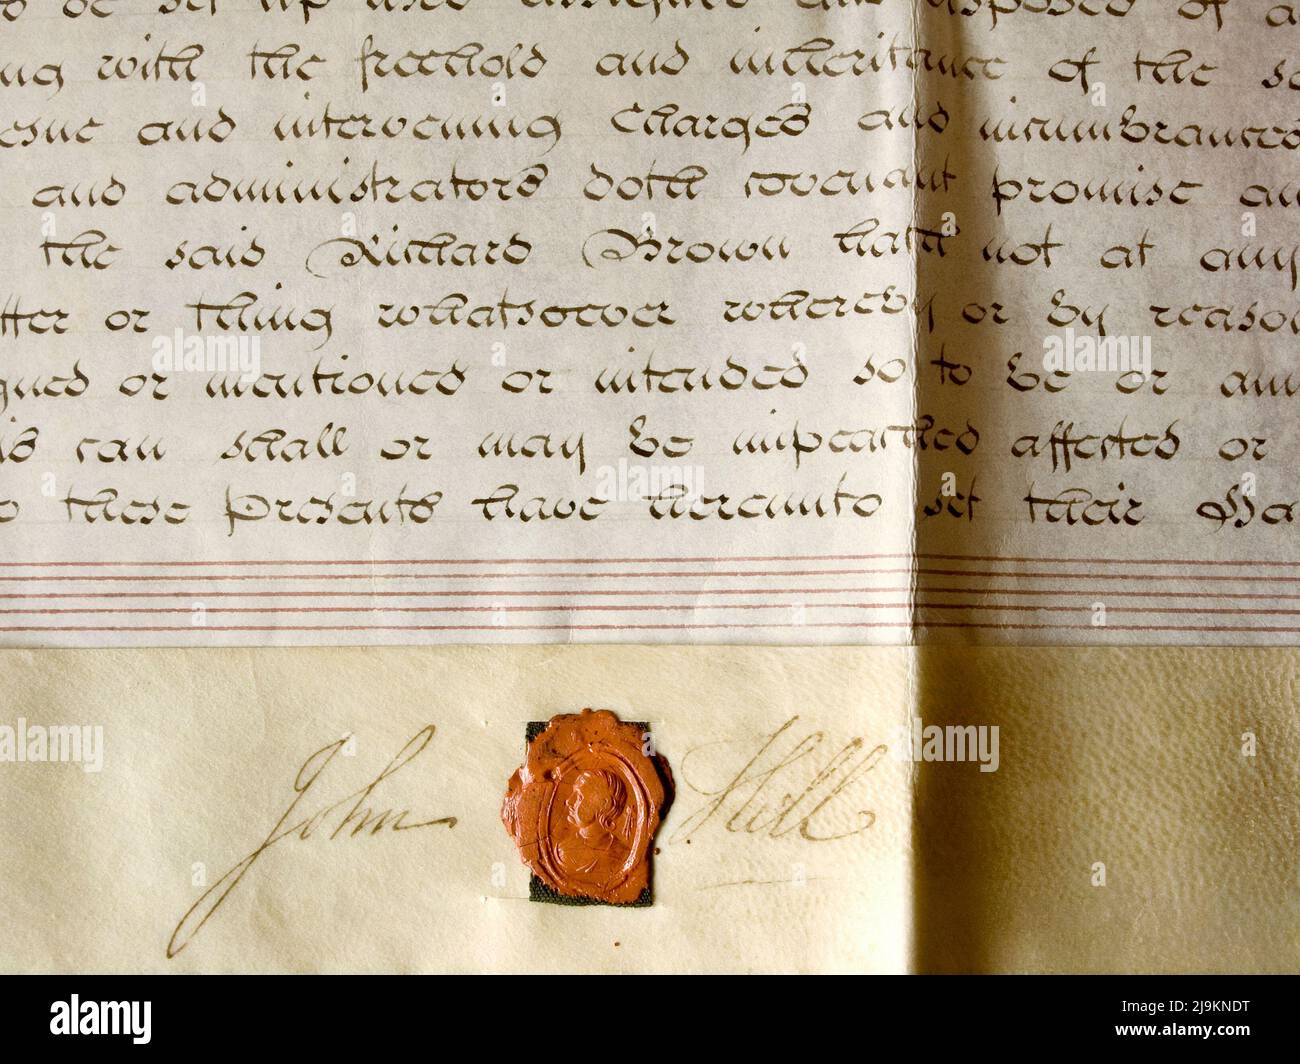 to be set up used assigned and disposed of a
ng with the freehold and inheritance of the sa
esne and intervening Charges and incumbrances
and administrators doth covenant promise an
the said Richard Brown hath not at any
tter or thing whatsoever whereby or by reason
gned or mentioned or intended so to be or any
is can shall or may be impeached affected or
o these Presents have hereunto set their Ha
John Still
alamy
Image ID: 2J9KNDT
www.alamy.com